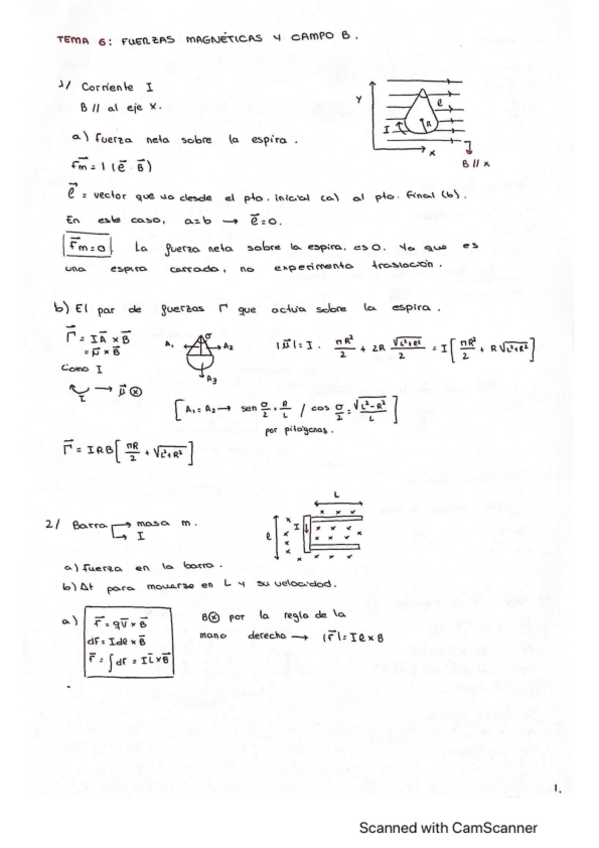 TEMA 6: FUERZAS MAGNÉTICAS Y CAMPO B.
1/ Corriente I
B // al eje x.
Y
I
R
ℓ
x
B // x
a) Fuerza neta sobre la espira.
Fm = I (ℓ · B)
ℓ = vector que va desde el pto. inicial (a) al pto. final (b).
En este caso, a=b → ℓ=0.
Fm=0 La fuerza neta sobre la espira, es 0. Ya que es
una espira cerrada, no experimenta traslación.
b) El par de fuerzas Γ que actua sobre la espira.
Γ = I A × B
= μ × B
A₁
σ
A₂
A₃
|μ| = I · πR²/2 + 2R √(L²+R²)/2 = I [πR²/2 + R √(L²+R²)]
Como I
I → μ ⊗
[A₁ = A₂ → sen σ/2 = R/L / cos σ/2 = √(L²-R²)/L]
por pitágoras.
Γ = IRB [πR/2 + √(L²+R²)]
2/ Barra → masa m.
→ I
L
ℓ
I
x x x x
a) Fuerza en la barra.
b) Δt para moverse en L y su velocidad.
a) F = qV × B
dF = I dℓ × B
F = ∫dF = I L × B
B⊗ por la regla de la
mano derecha → |F| = I ℓ × B
1.
Scanned with CamScanner